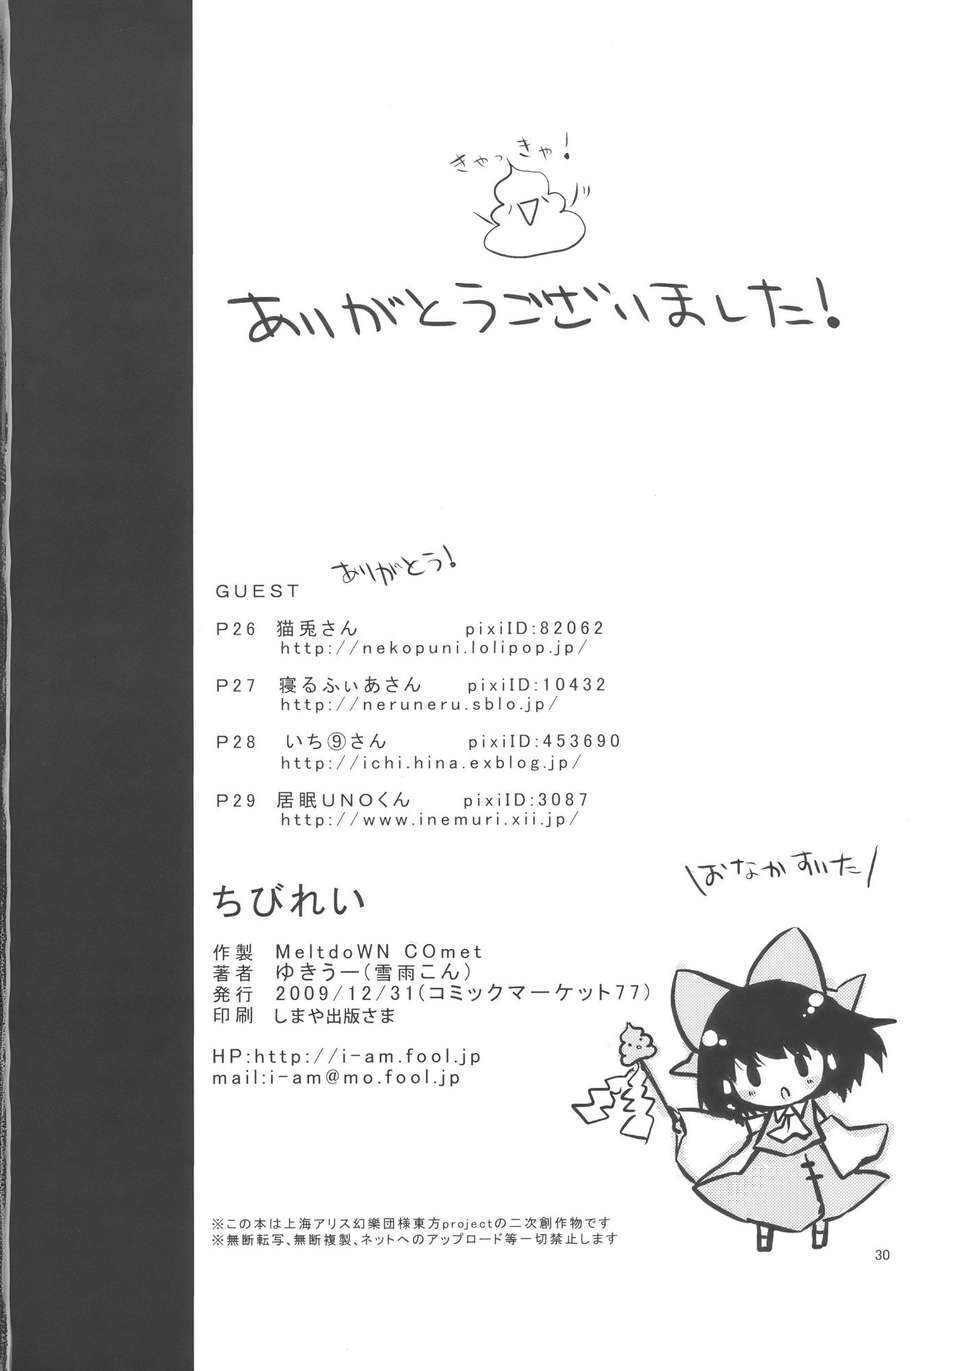 きゃっきゃ!
ありがとうございました!
GUEST ありがとう!
P26 猫兎さん pixiID:82062
http://nekopuni.lolipop.jp/
P27 寝るふぃあさん pixiID:10432
http://neruneru.sblo.jp/
P28 いち⑨さん pixiID:453690
http://ichi.hina.exblog.jp/
P29 居眠UNOくん pixiID:3087
http://www.inemuri.xii.jp/
\おなかすいた/
ちびれい
作製 MeltdoWN COmet
著者 ゆきうー(雪雨こん)
発行 2009/12/31(コミックマーケット77)
印刷 しまや出版さま
HP:http://i-am.fool.jp
mail:i-am@mo.fool.jp
※この本は上海アリス幻樂団様東方projectの二次創作物です
※無断転写、無断複製、ネットへのアップロード等一切禁止します
30